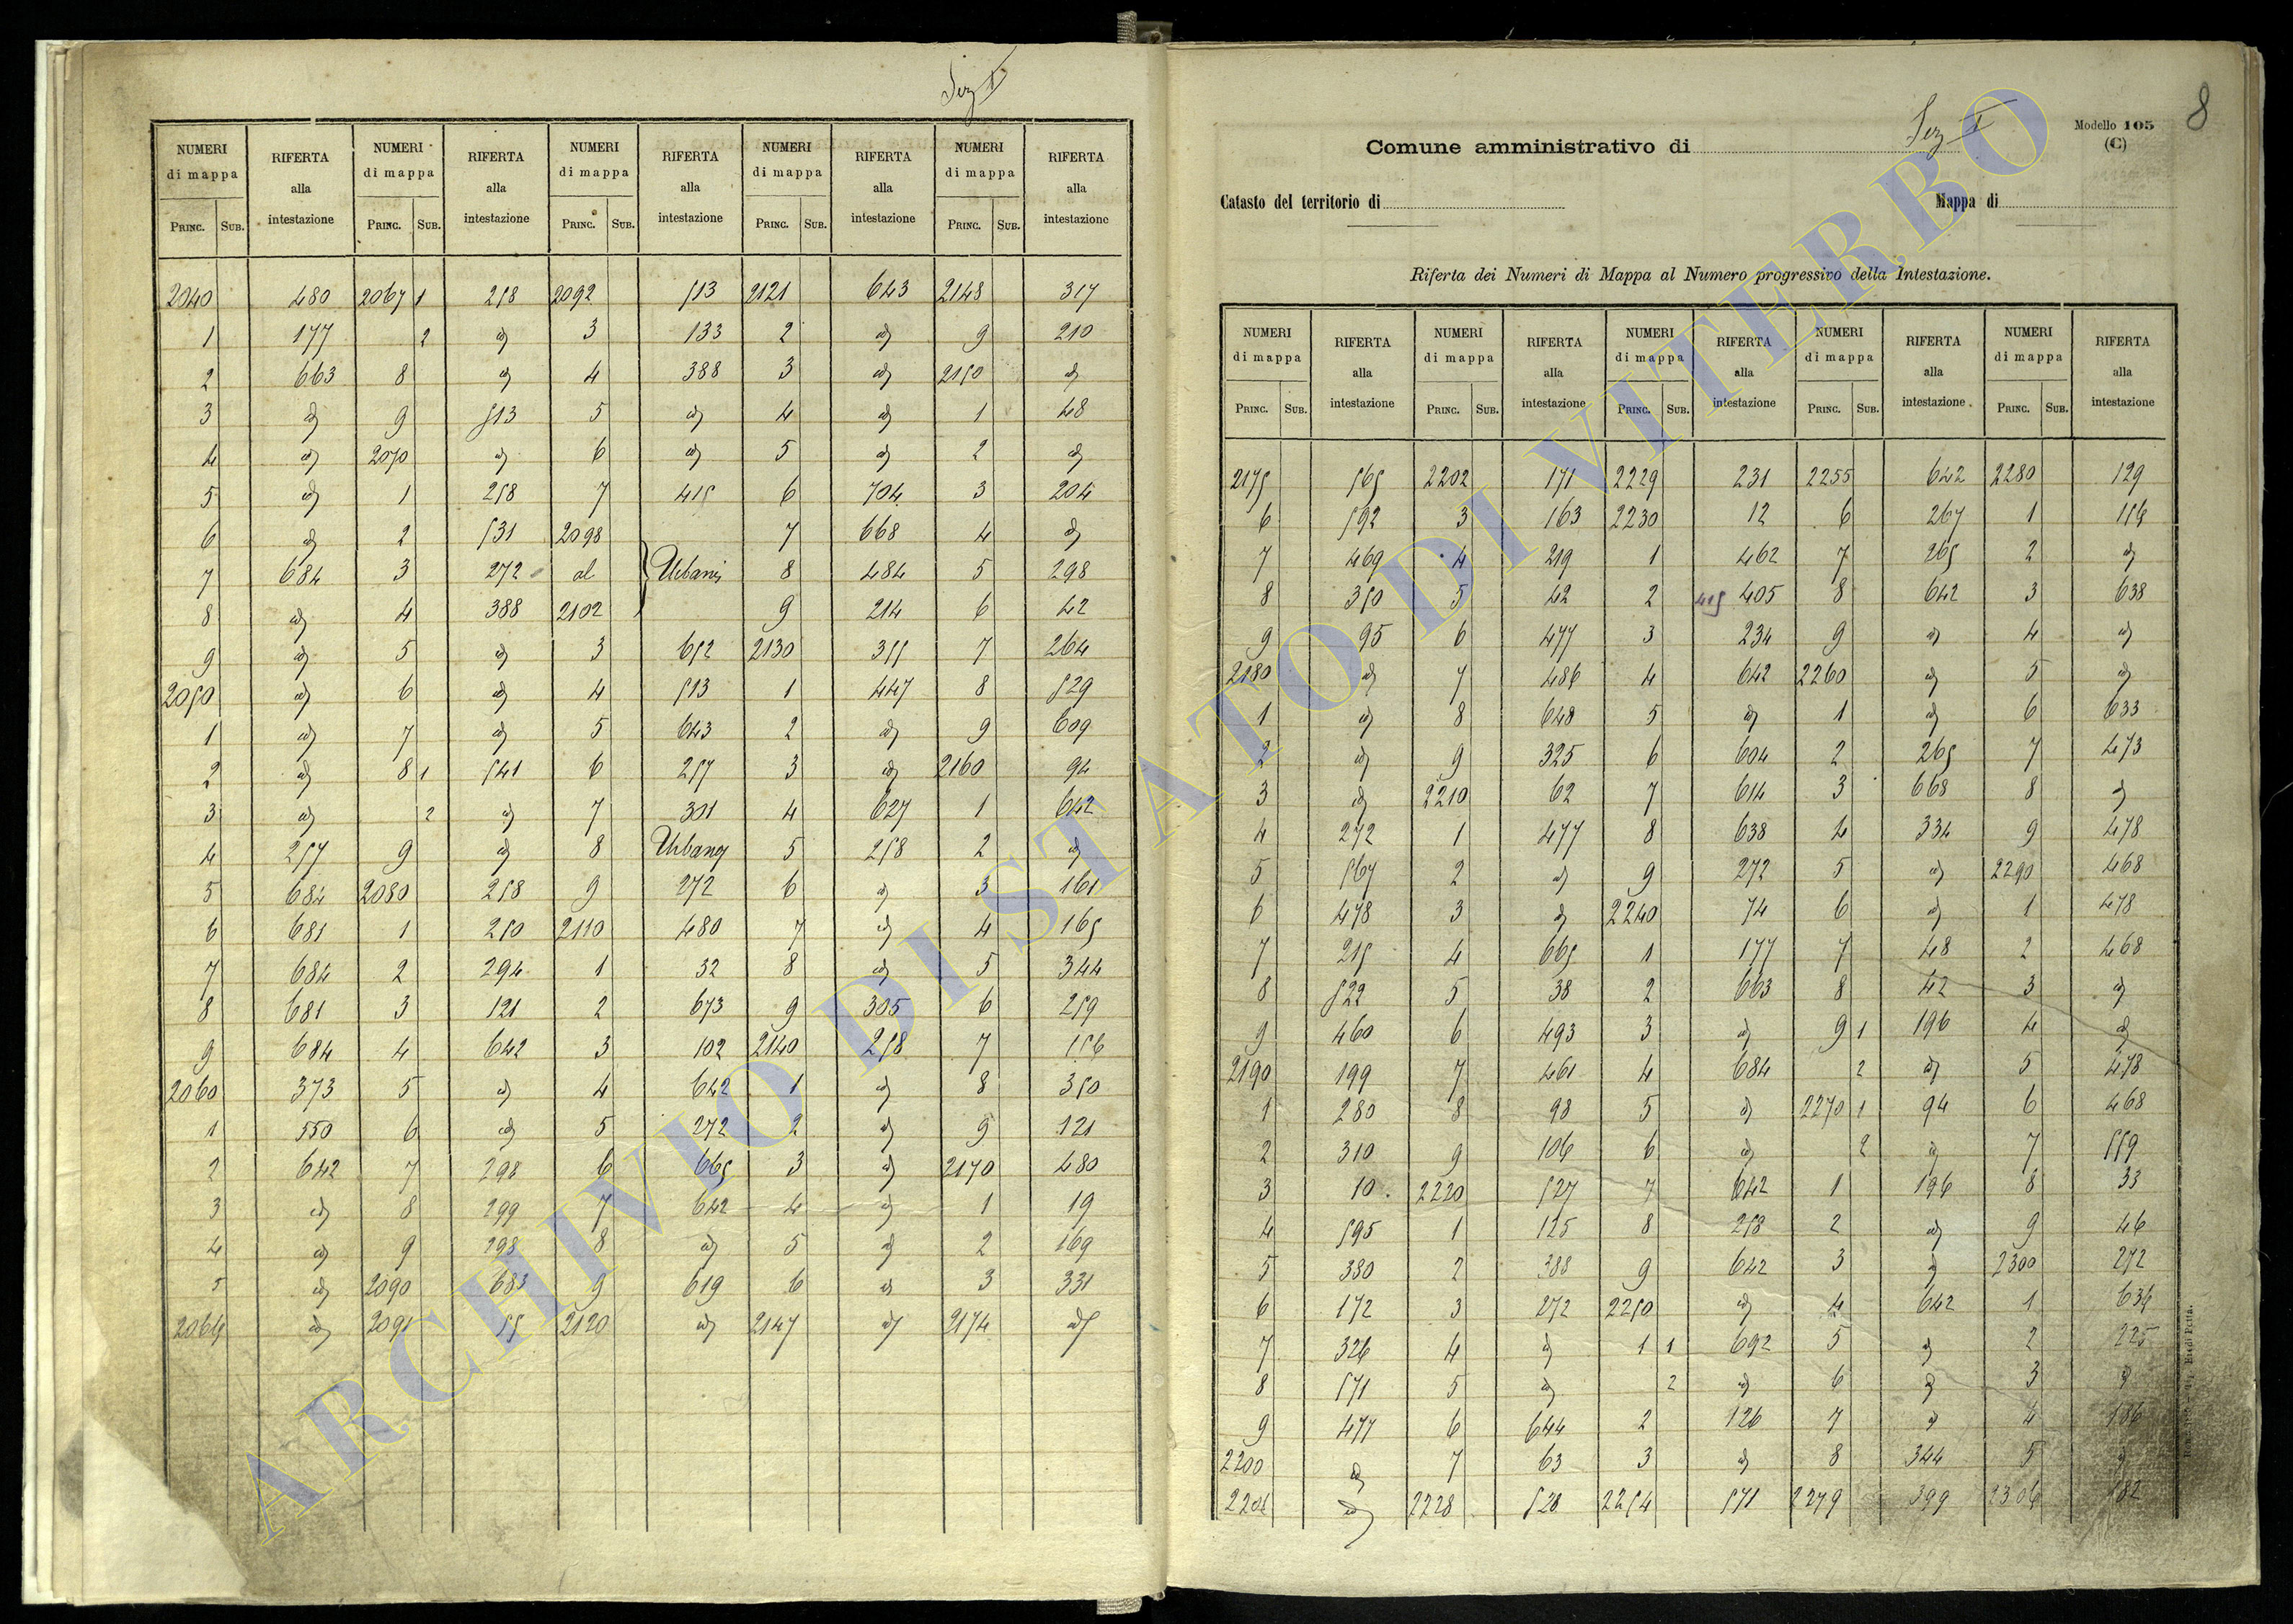 Sez I
NUMERI di mappa RIFERTA alla intestazione NUMERI di mappa RIFERTA alla intestazione NUMERI di mappa RIFERTA alla intestazione NUMERI di mappa RIFERTA alla intestazione NUMERI di mappa RIFERTA alla intestazione
PRINC. SUB. PRINC. SUB. PRINC. SUB. PRINC. SUB. PRINC. SUB.
2040 480 2067 1 258 2092 513 2121 643 2148 317
1 177 2 id 3 133 2 id 9 210
2 663 8 id 4 388 3 id 2150 id
3 id 9 513 5 id 4 id 1 48
4 id 2070 id 6 id 5 id 2 id
5 id 1 258 7 415 6 704 3 204
6 id 2 531 2098 7 668 4 id
7 684 3 272 al Urbani 8 484 5 298
8 id 4 388 2102 9 214 6 42
9 id 5 id 3 652 2130 355 7 264
2050 id 6 id 4 513 1 447 8 529
1 id 7 id 5 643 2 id 9 609
2 id 8 1 541 6 257 3 id 2160 94
3 id 2 id 7 301 4 627 1 642
4 257 9 id 8 Urbano 5 258 2 id
5 684 2080 258 9 272 6 id 3 161
6 681 1 250 2110 480 7 id 4 165
7 684 2 294 1 32 8 id 5 344
8 681 3 121 2 673 9 305 6 259
9 684 4 642 3 102 2140 258 7 156
2060 373 5 id 4 642 1 id 8 350
1 550 6 id 5 272 2 id 9 121
2 642 7 298 6 665 3 id 2170 480
3 id 8 299 7 642 4 id 1 19
4 id 9 298 8 id 5 id 2 169
5 id 2090 683 9 619 6 id 3 331
2066 id 2091 55 2120 id 2147 id 2174 id
8
Sez I
Modello 105
(C)
Comune amministrativo di
Catasto del territorio di Mappa di
Riferta dei Numeri di Mappa al Numero progressivo della Intestazione.
NUMERI di mappa RIFERTA alla intestazione NUMERI di mappa RIFERTA alla intestazione NUMERI di mappa RIFERTA alla intestazione NUMERI di mappa RIFERTA alla intestazione NUMERI di mappa RIFERTA alla intestazione
PRINC. SUB. PRINC. SUB. PRINC. SUB. PRINC. SUB. PRINC. SUB.
2175 565 2202 171 2229 231 2255 642 2280 129
6 592 3 163 2230 12 6 267 1 156
7 469 4 219 1 462 7 265 2 id
8 350 5 42 2 415 405 8 642 3 638
9 95 6 477 3 234 9 id 4 id
2180 id 7 486 4 642 2260 id 5 id
1 id 8 648 5 id 1 id 6 633
2 id 9 325 6 604 2 265 7 473
3 id 2210 62 7 614 3 668 8 id
4 272 1 477 8 638 4 334 9 478
5 567 2 id 9 272 5 id 2290 468
6 478 3 id 2240 74 6 id 1 478
7 215 4 665 1 177 7 48 2 468
8 522 5 38 2 663 8 42 3 id
9 460 6 493 3 id 9 1 196 4 id
2190 199 7 461 4 684 2 id 5 478
1 280 8 98 5 id 2270 1 94 6 468
2 310 9 106 6 id 2 id 7 559
3 10 2220 527 7 642 1 196 8 33
4 595 1 125 8 258 2 id 9 46
5 380 2 388 9 642 3 id 2300 272
6 172 3 272 2250 id 4 642 1 636
7 326 4 id 1 1 692 5 id 2 225
8 571 5 id 2 id 6 id 3 id
9 477 6 644 2 126 7 id 4 186
2200 id 7 63 3 id 8 344 5 id
2201 id 2228 528 2254 571 2279 399 2306
ARCHIVIO DI STATO DI VITERBO